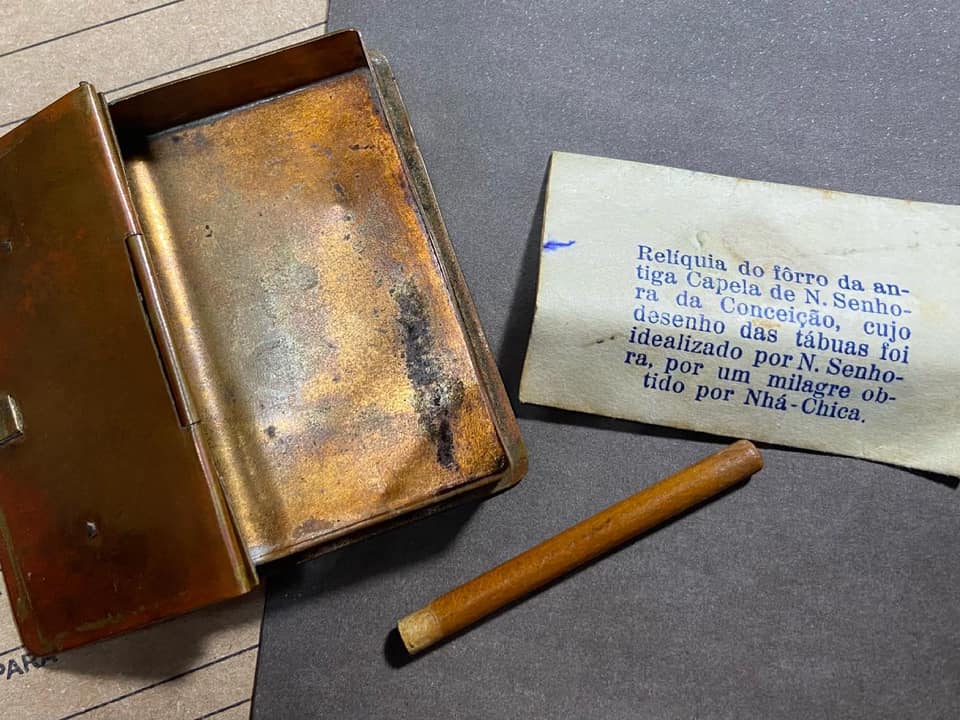 Relíquia do fôrro da an-
tiga Capela de N. Senho-
ra da Conceição, cujo
desenho das tábuas foi
idealizado por N. Senho-
ra, por um milagre ob-
tido por Nhá-Chica.
PARA